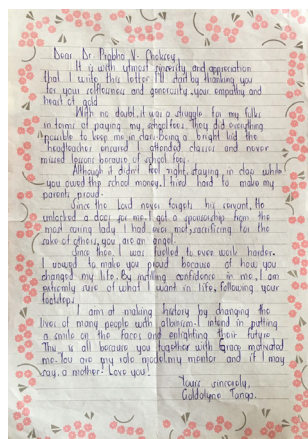 Dear Dr. Prabha N. Choksey,
It is with utmost sincerity and appreciation
that I write this letter. I'll start by thanking you
for your selflessness and generosity, your empathy and
heart of gold.
With no doubt, it was a struggle for my folks
in terms of paying my school fees. They did everything
possible to keep me in class. Being a bright kid the
headteacher ensured I attended classes and never
missed lessons because of school fees.
Although it didn't feel right, staying in class while
you owed the school money, I tried hard to make my
parents proud.
Since the Lord never forgets his servant, He
unlocked a door for me. I got a sponsorship from the
most caring lady I had ever met, sacrificing for the
sake of others, you are an angel.
Since then, I was fuelled to even work harder.
I vowed to make you proud because of how you
changed my life. By instilling confidence in me, I am
extremely sure of what I want in life, following your
footsteps.
I aim at making history by changing the
lives of many people with albinism. I intend in putting
a smile on the faces and enlighting their future.
This is all because you together with Grace motivated
me. You are my role model, my mentor and if I may
say, a mother! Love you!
Yours sincerely,
Tango.